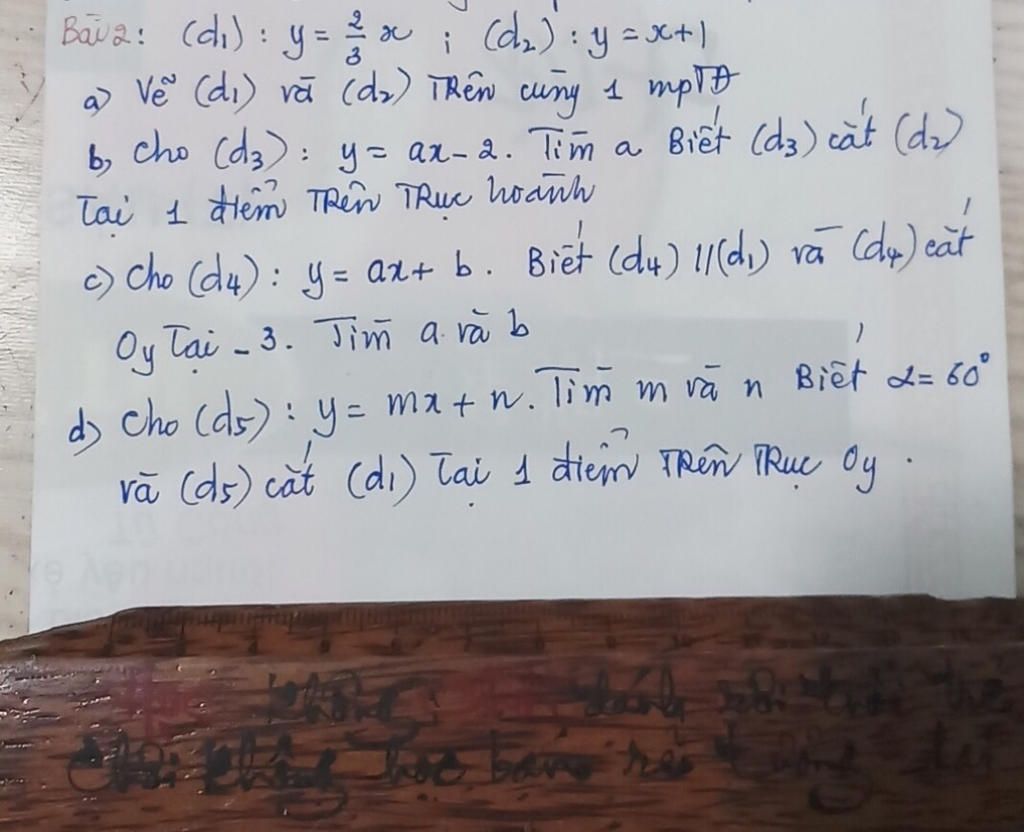 Bài 2: (d₁): y = 2/3 x ; (d₂): y = x+1
a) Vẽ (d₁) và (d₂) Trên cùng 1 mpTĐ
b, Cho (d₃): y = ax - 2. Tìm a Biết (d₃) cắt (d₂)
Tại 1 điểm Trên Trục hoành
c) Cho (d₄): y = ax + b. Biết (d₄) // (d₁) và (d₄) cắt
Oy Tại -3. Tìm a và b
d) Cho (d₅): y = mx + n. Tìm m và n Biết α = 60°
và (d₅) cắt (d₁) Tại 1 điểm Trên Trục Oy.
không